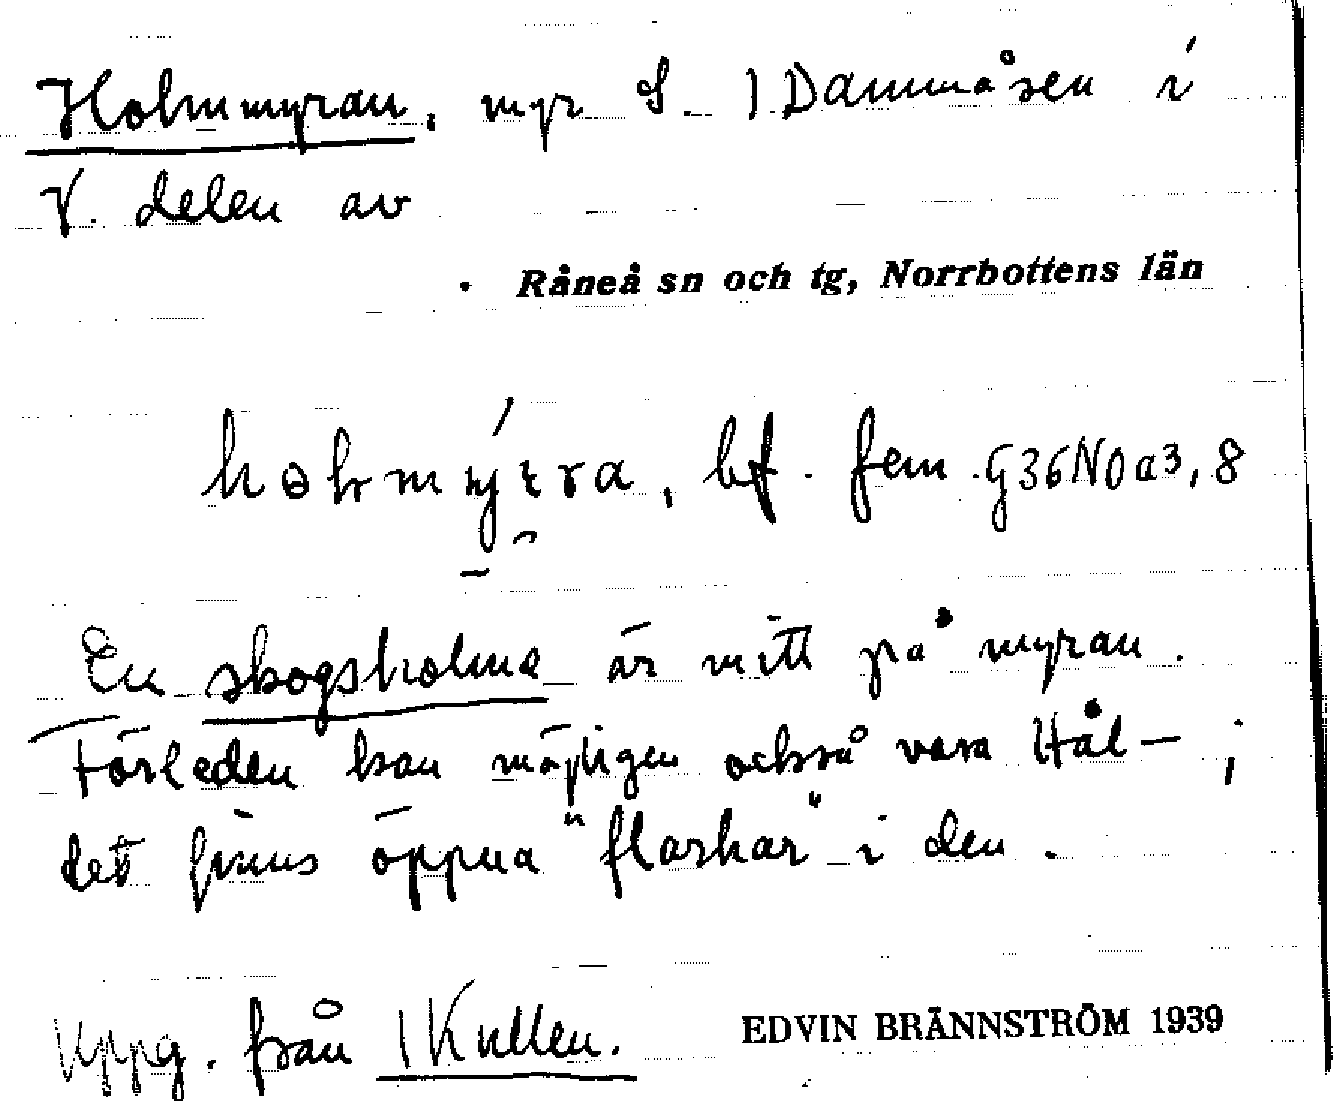 Holmmyran, myr S. 1 Dammåsen i
V. delen av
Råneå sn och tg, Norrbottens län
bf. fem. G36N0a3,8
En skogsholme är mitt på myran.
Förleden kan möjligen också vara Hål- ;
det finns öppna "flarkar" i den.
Uppg. från 1 Kullen.
EDVIN BRÄNNSTRÖM 1939